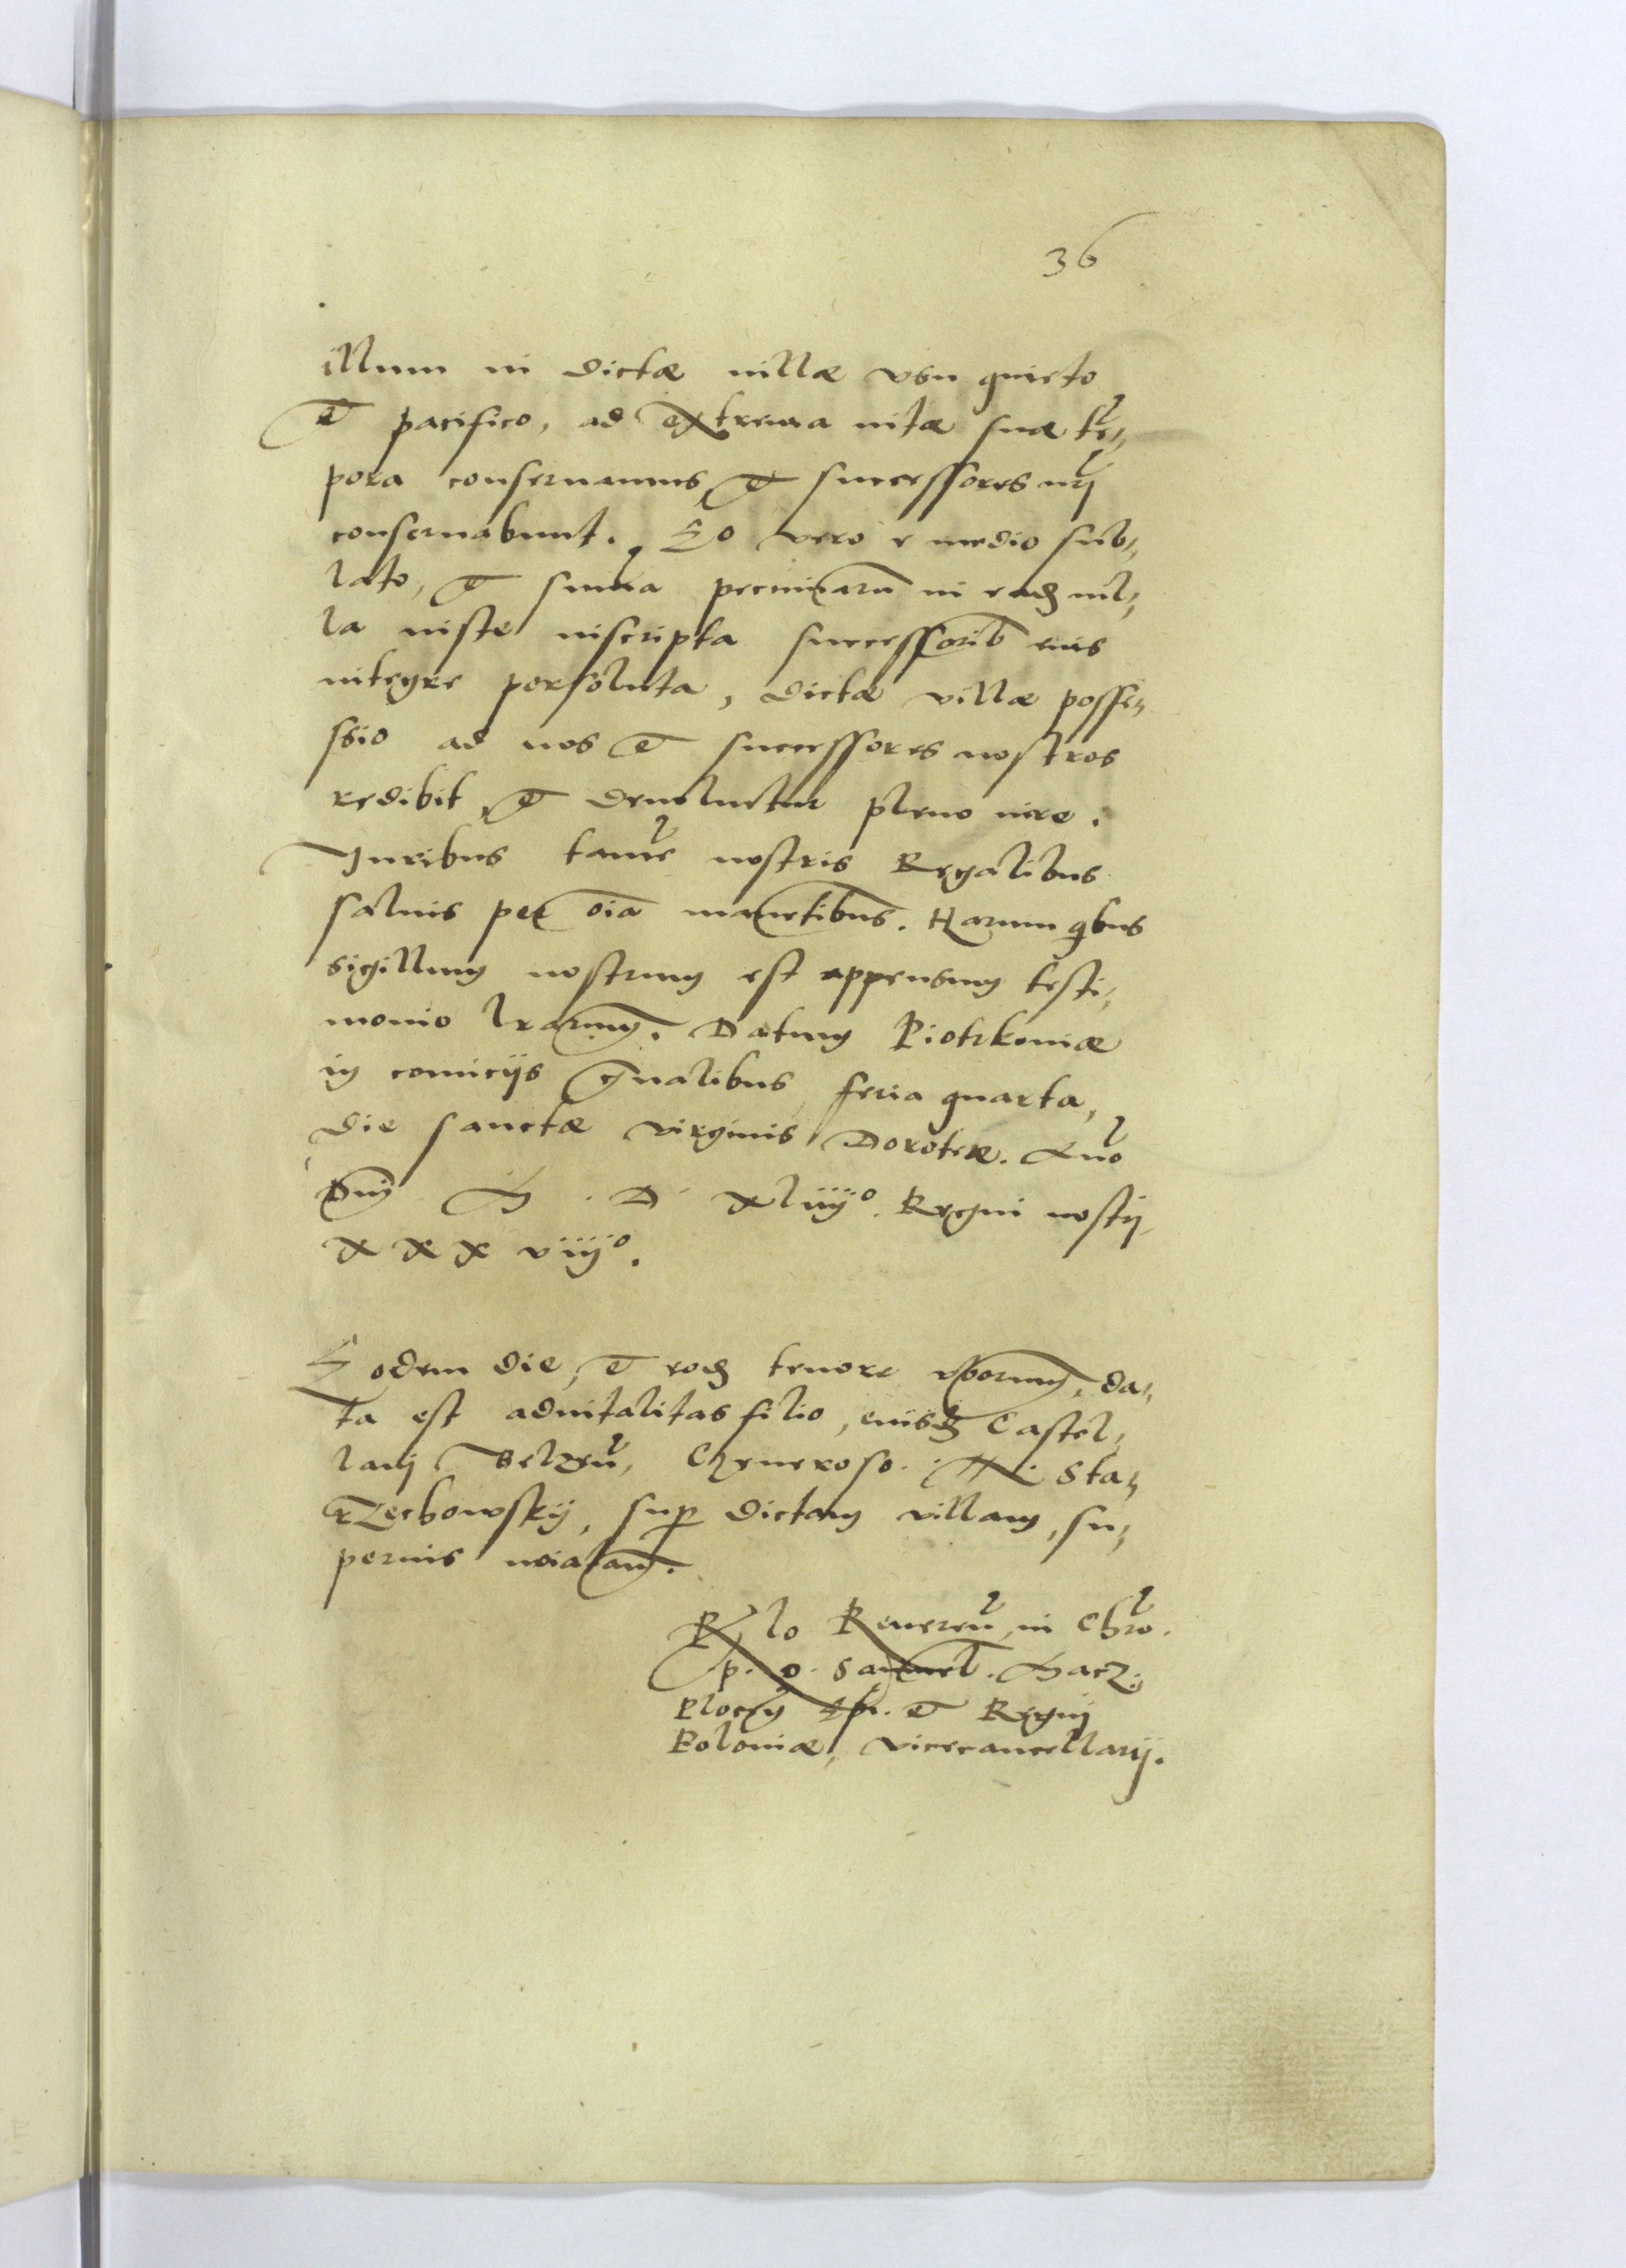 36
illum in dictæ uillæ vsu quieto
et pacifico, ad extrema uitæ suæ tẽ,,
pora conseruamus, et successores nr̃j
conseruabunt. Eo vero e medio sub,,
lato, et sum̃a pecuniarũ in eadẽ uil,,
la iuste inscripta successorib eius
integre persoluta, dictæ villæ posses,,
ssio ad nos et successores nostros
redibit, et deuoluetur pleno iure.
Iuribus tamẽ nostris Regalibus
saluis per oĩa manẽtibus. Harum qbus
sigillum nostrum est appensum testi,,
monio lrarum. Datum Piotrkouiæ
in comicijs gñalibus, feria quarta,
die sanctæ virginis Doroteæ. Año
Dnj M . D . xliiijº. Regni nostrj
x x x viijº.
Eodem die, et eodẽ tenore vborum, da,,
ta est aduitalitas filio, eiusdẽ Castel,,
lanj Belzeñ, Generoso . N. Sta,,
rzechowskij, sup dictam villam, su,,
perius noiatam.
Rlo Reuereñ, in Chro.
p. D. Samuel. Macz.
Plocen̄ Epi. et Regnj
Poloniæ, vicecancellarij.